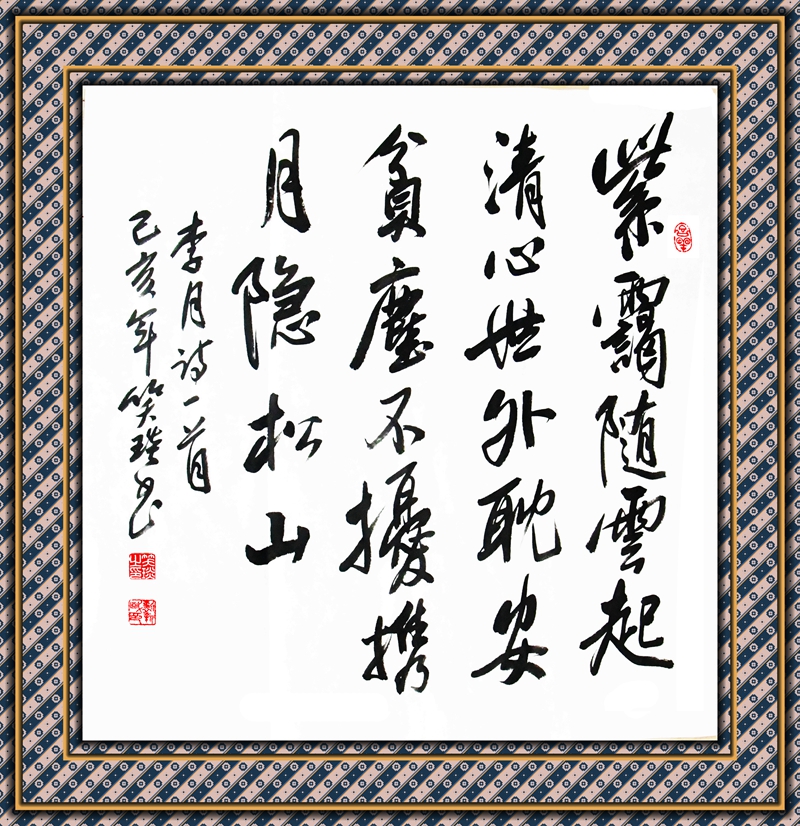 紫靄随雲起
清心世外耽安
貧塵不擾携
月隐松山
李月诗一首
己亥年笑瑾书